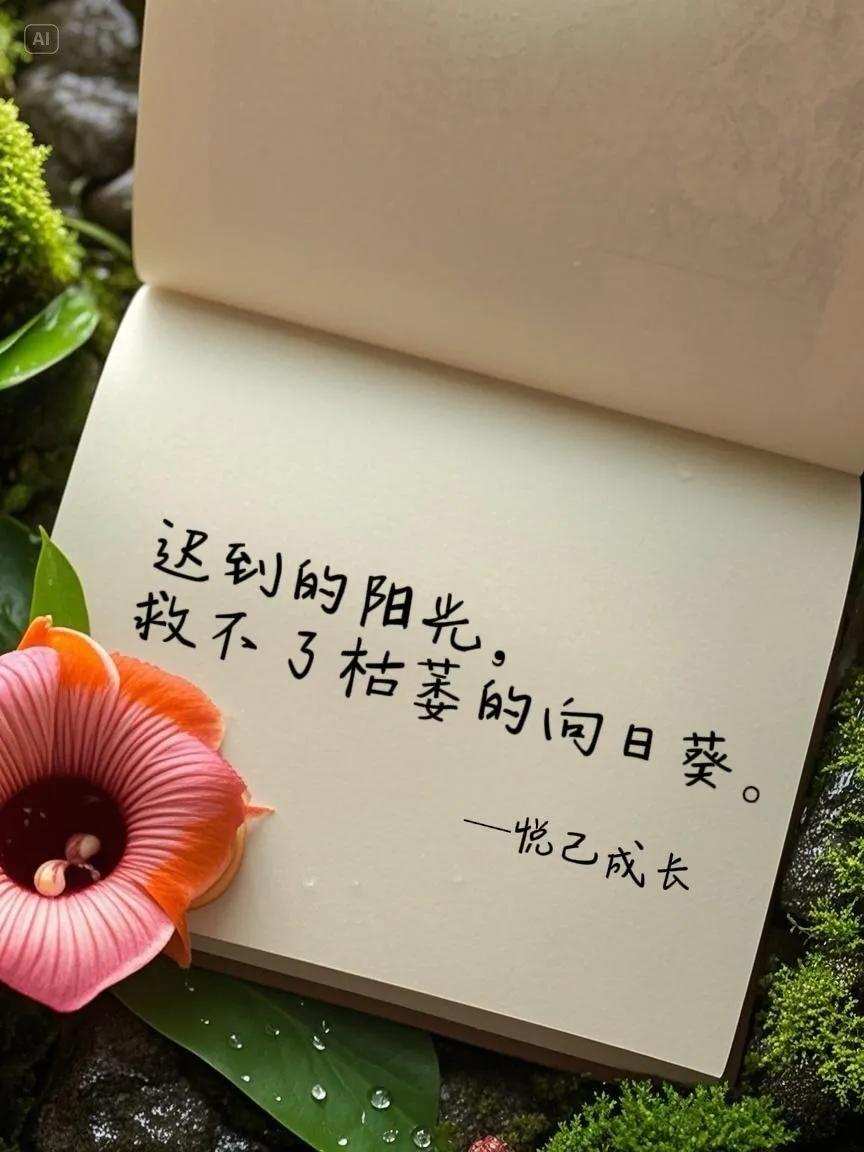 AI
迟到的阳光，
救不了枯萎的向日葵。
—悦己成长